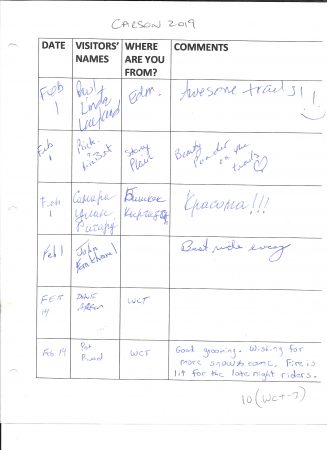 CARSON 2019
DATE VISITORS' NAMES WHERE ARE YOU FROM? COMMENTS
Feb 1 Paul + Linda Edm. Awesome trails!!
Feb 1 Rick Stony Plain Beauty Powder on the trails
Feb 1 Самира Бишкек Красота!!!
Feb 1 John Best ride every
FEB 14 DAVE WCT
Feb 14 Pat WCT Good grooming. Wishing for
more snow to come. Fire is
lit for the late night riders.
10 (WCT-7)